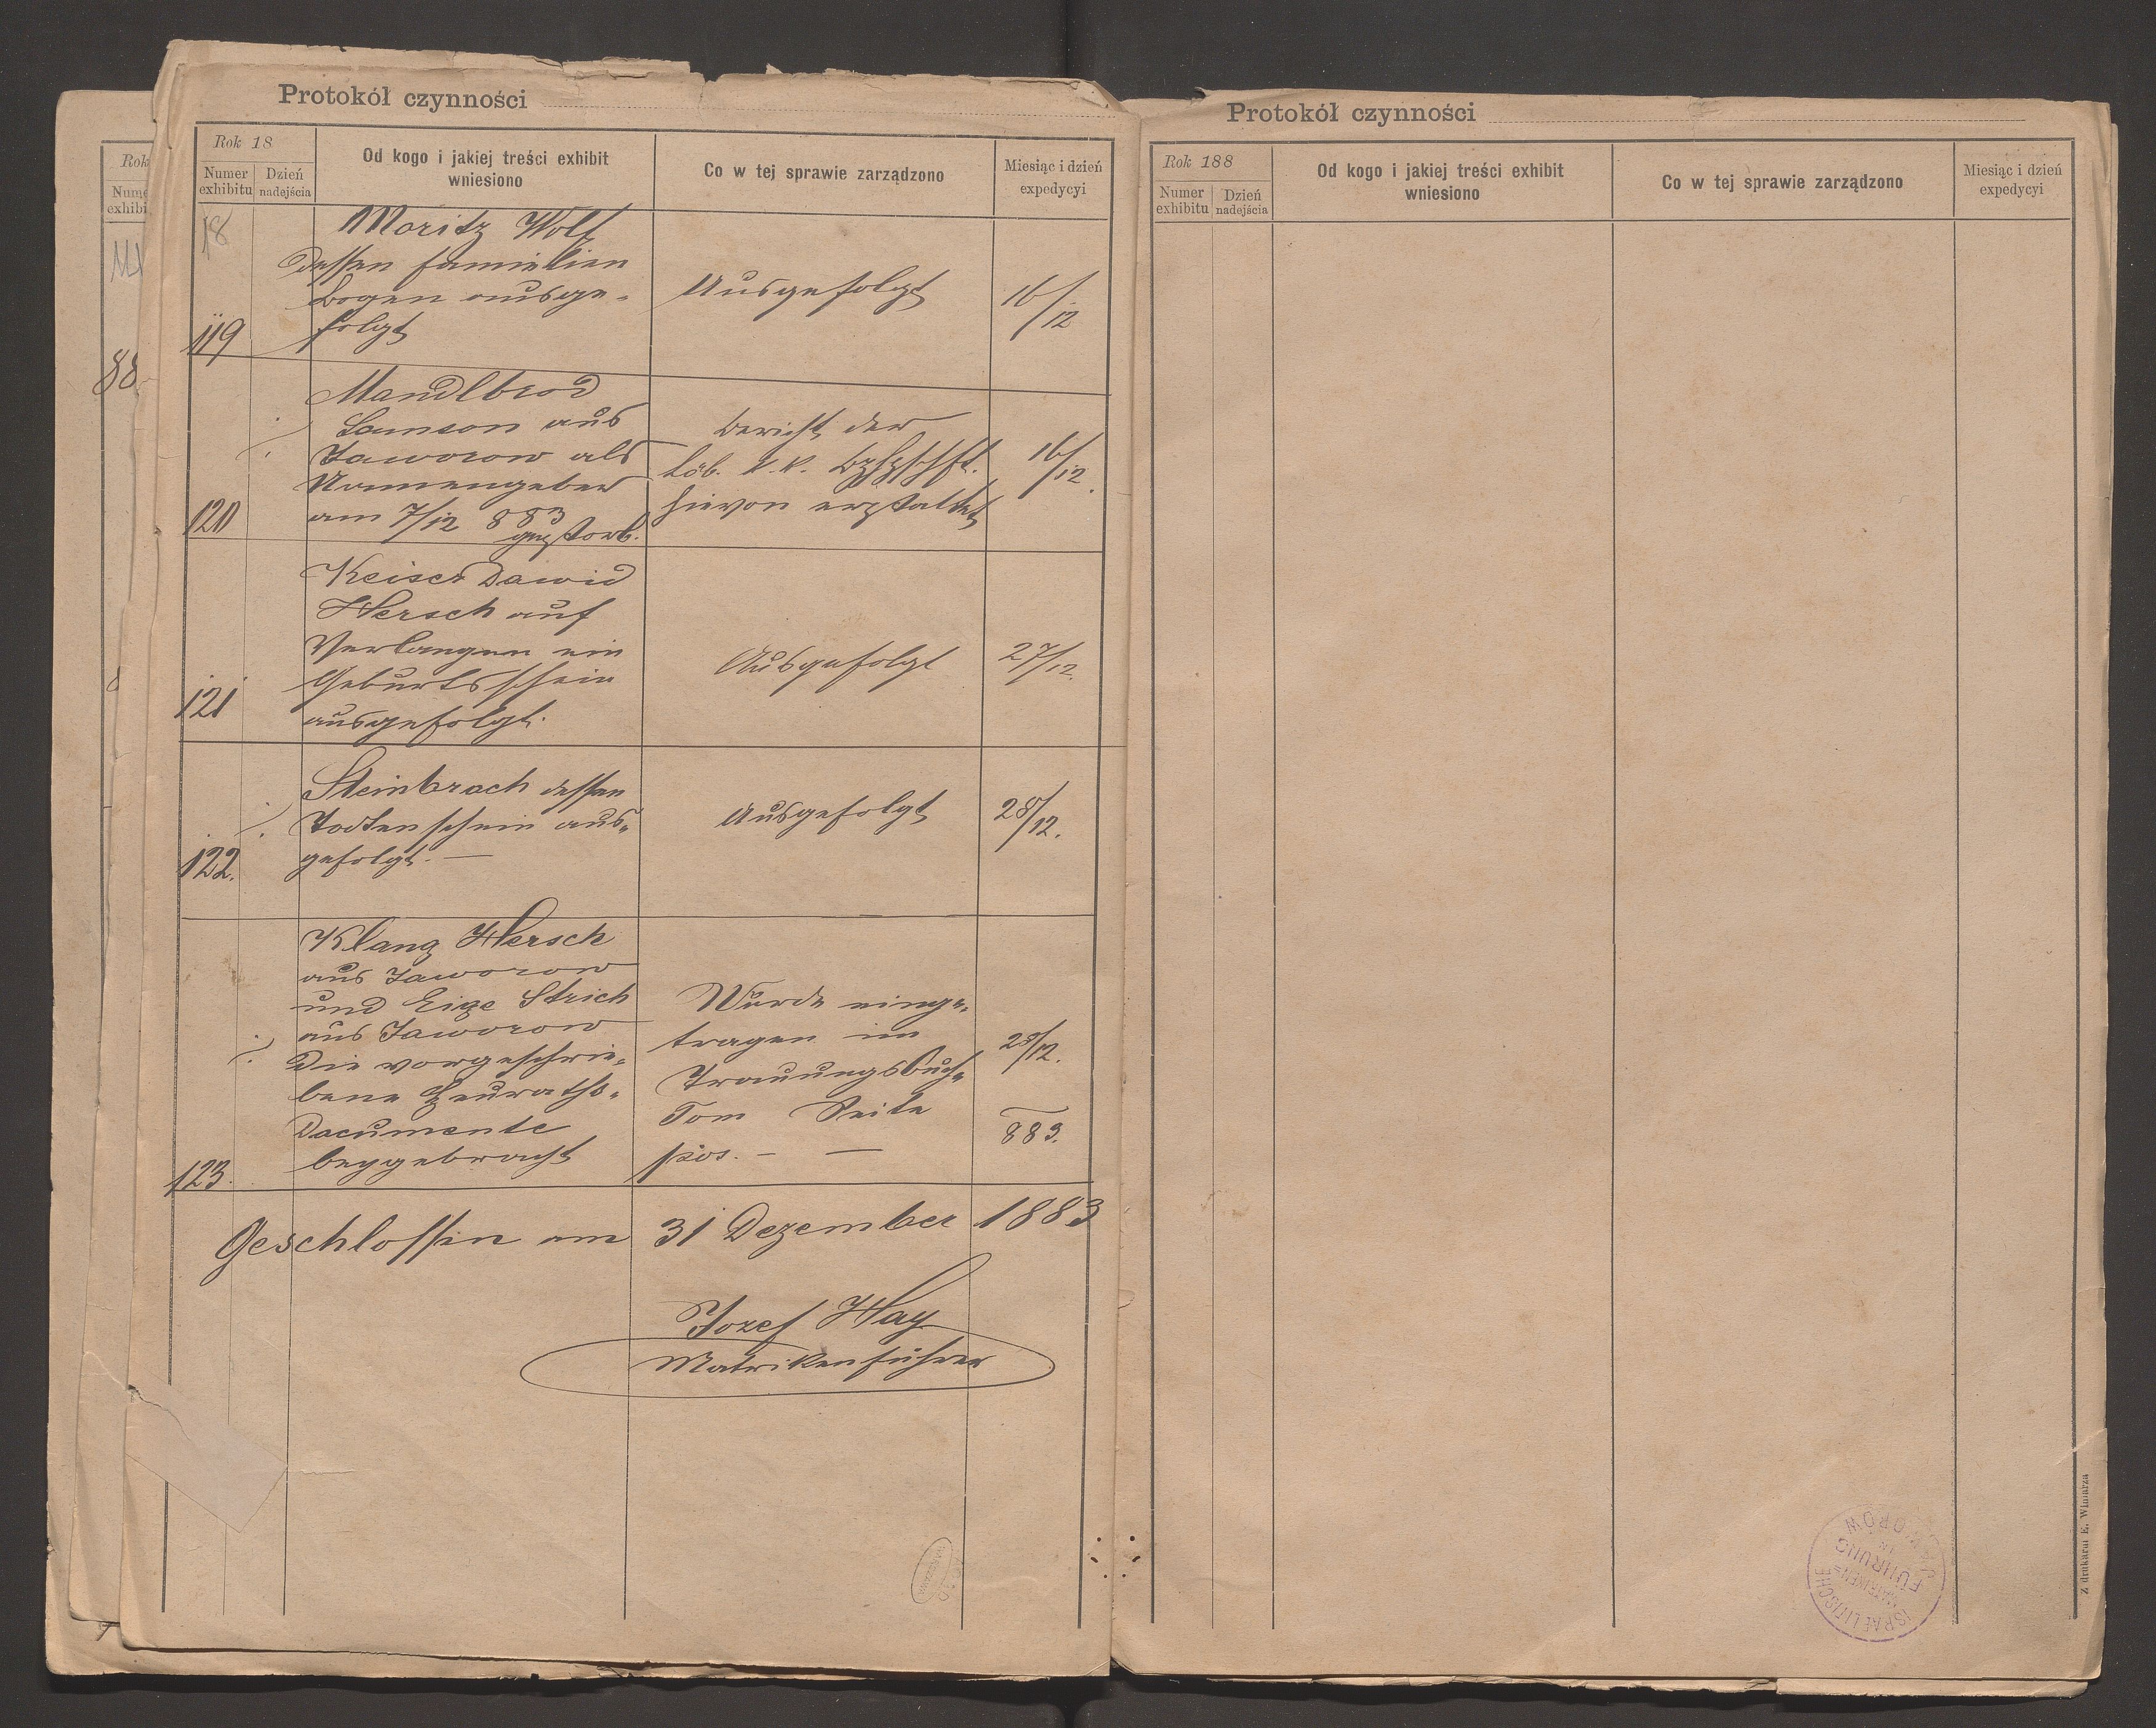 Protokół czynności
Rok 18
Numer exhibitu
Dzień nadejścia
Od kogo i jakiej treści exhibit
wniesiono
Co w tej sprawie zarządzono
Miesiąc i dzień
expedycyi
18
Moritz Wolf
dessen Familien
bogen ausge-
folgt
119
Ausgefolgt
16/12
Mandlbrod
Samson aus
Jaworow als
Namengeber
am 7/12 883
gestorb.
120
Bericht der
Löb. k. k.
hievon erstattet
16/12.
Keiser Dawid
Hersch auf
Verlangen ein
Geburtsschein
ausgefolgt.
121
Ausgefolgt
27/12.
Steinbrach dessen
Todtenschein aus-
gefolgt. —
122.
Ausgefolgt
28/12.
Klang Hersch
aus Jaworow
und Eige Strich
aus Jaworow
Die vorgeschrie-
bene Heuraths-
Documente
beygebracht
123.
Wurde einge-
tragen im
Trauungsbuche
Tom Seite
pos. — —
28/12.
883.
Geschlossen am 31 Dezember 1883
Jozef Hay
Matrikenführer
Rok
88
Protokół czynności
Rok 188
Numer exhibitu
Dzień nadejścia
Od kogo i jakiej treści exhibit
wniesiono
Co w tej sprawie zarządzono
Miesiąc i dzień
expedycyi
ISRAELITISCHE
MATRIKEN=
FÜHRUNG
IN
JAWORÓW
Z drukarni E. Winiarza